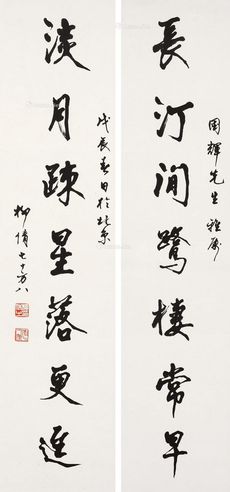 國輝先生雅屬
長汀澗鷺棲常早
淡月疎星落更遲
戊辰春日於北京
柳倩七十又八